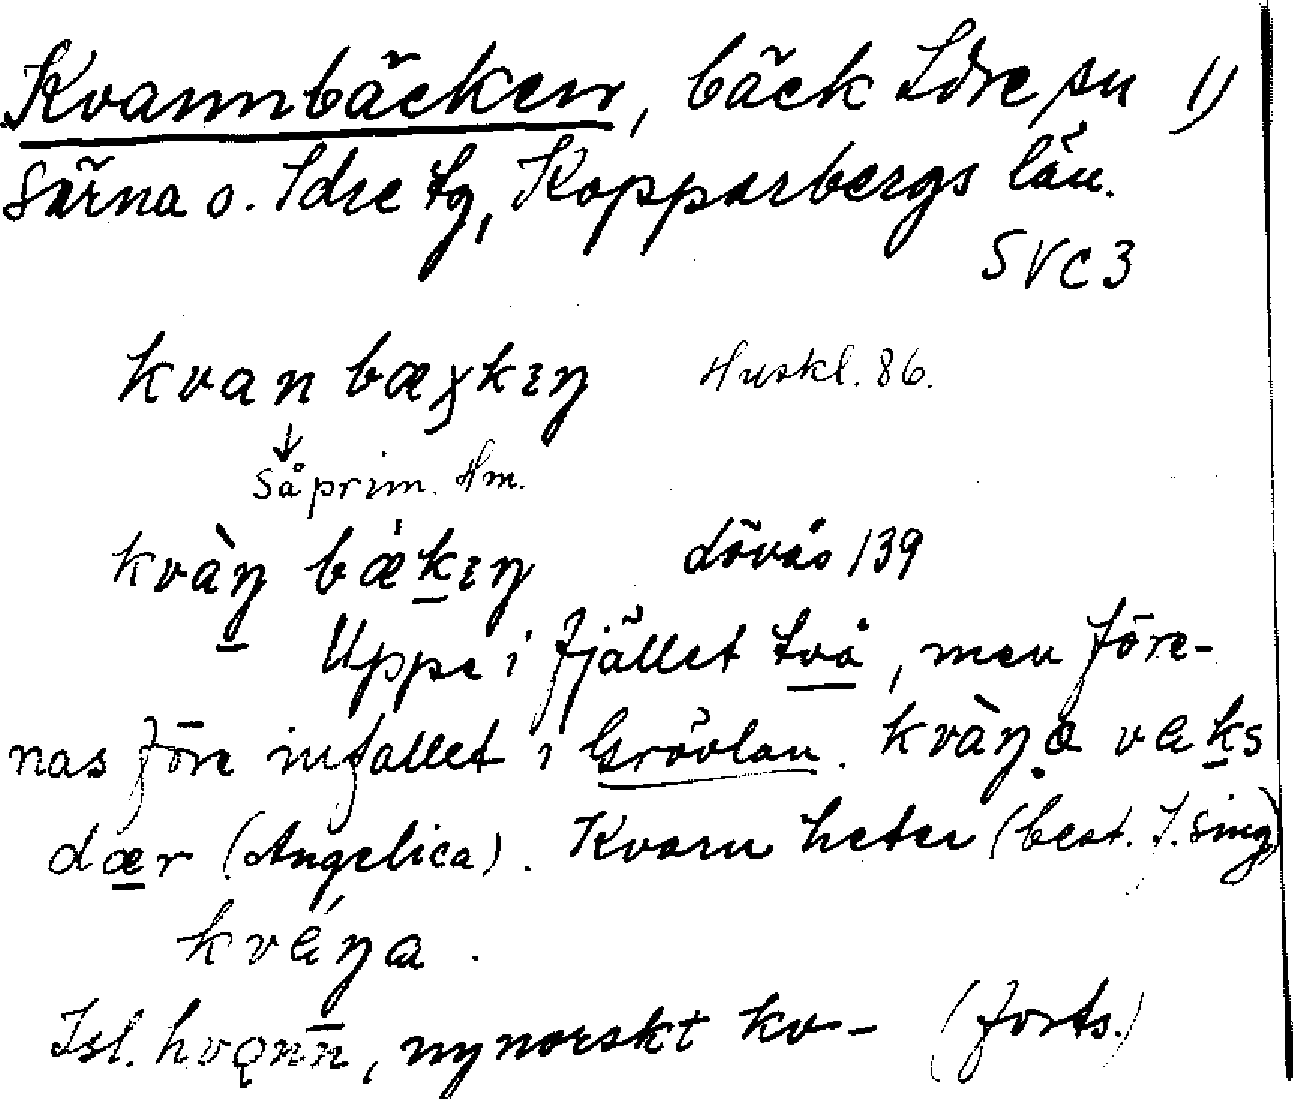 Kvannbäcken, bäck Idre sn 1)
Särna o. Idre tg, Kopparbergs län.
SVC3
kvan bæχkɪŋ Huskl. 86.
↓
Så prim. Hm.
kvàŋ bǽkɪŋ Lövås 139
Uppe i fjället två, men före-
nas före infallet i Grövlan. kvàŋa vaks
dær (Angelica). Kvarn heter (best. f. sing)
kváŋa.
Isl. hvǫnn, nynorskt kv- (forts.)